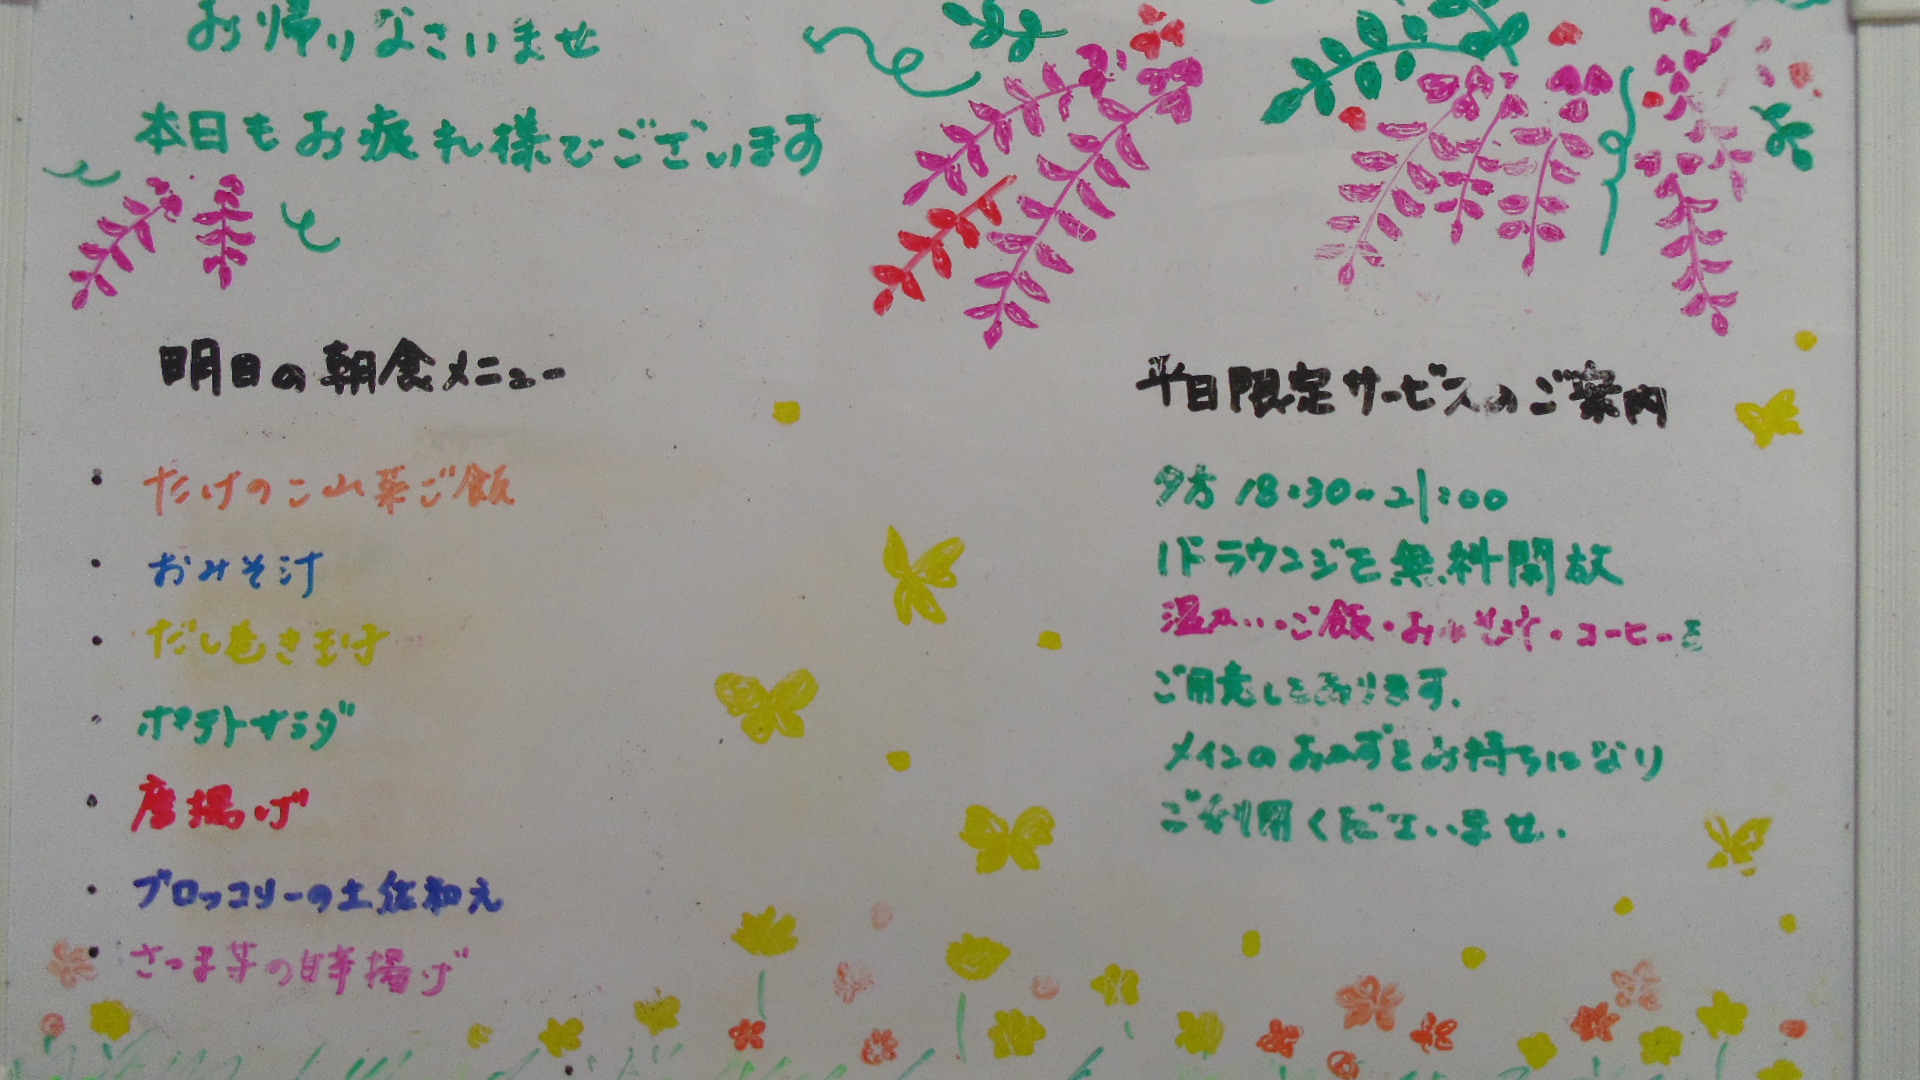 お帰りなさいませ
本日もお疲れ様でございます
明日の朝食メニュー
・たけのこ山菜ご飯
・おみそ汁
・だし巻き玉子
・ポテトサラダ
・唐揚げ
・ブロッコリーの土佐和え
・さつま芋の甘辛揚げ
平日限定サービスのご案内
夕方 18:30~21:00
1Fラウンジを無料開放
温かい・ご飯・おみそ汁・コーヒーを
ご用意しております。
メインのおかずをお持ちになり
ご利用くださいませ.